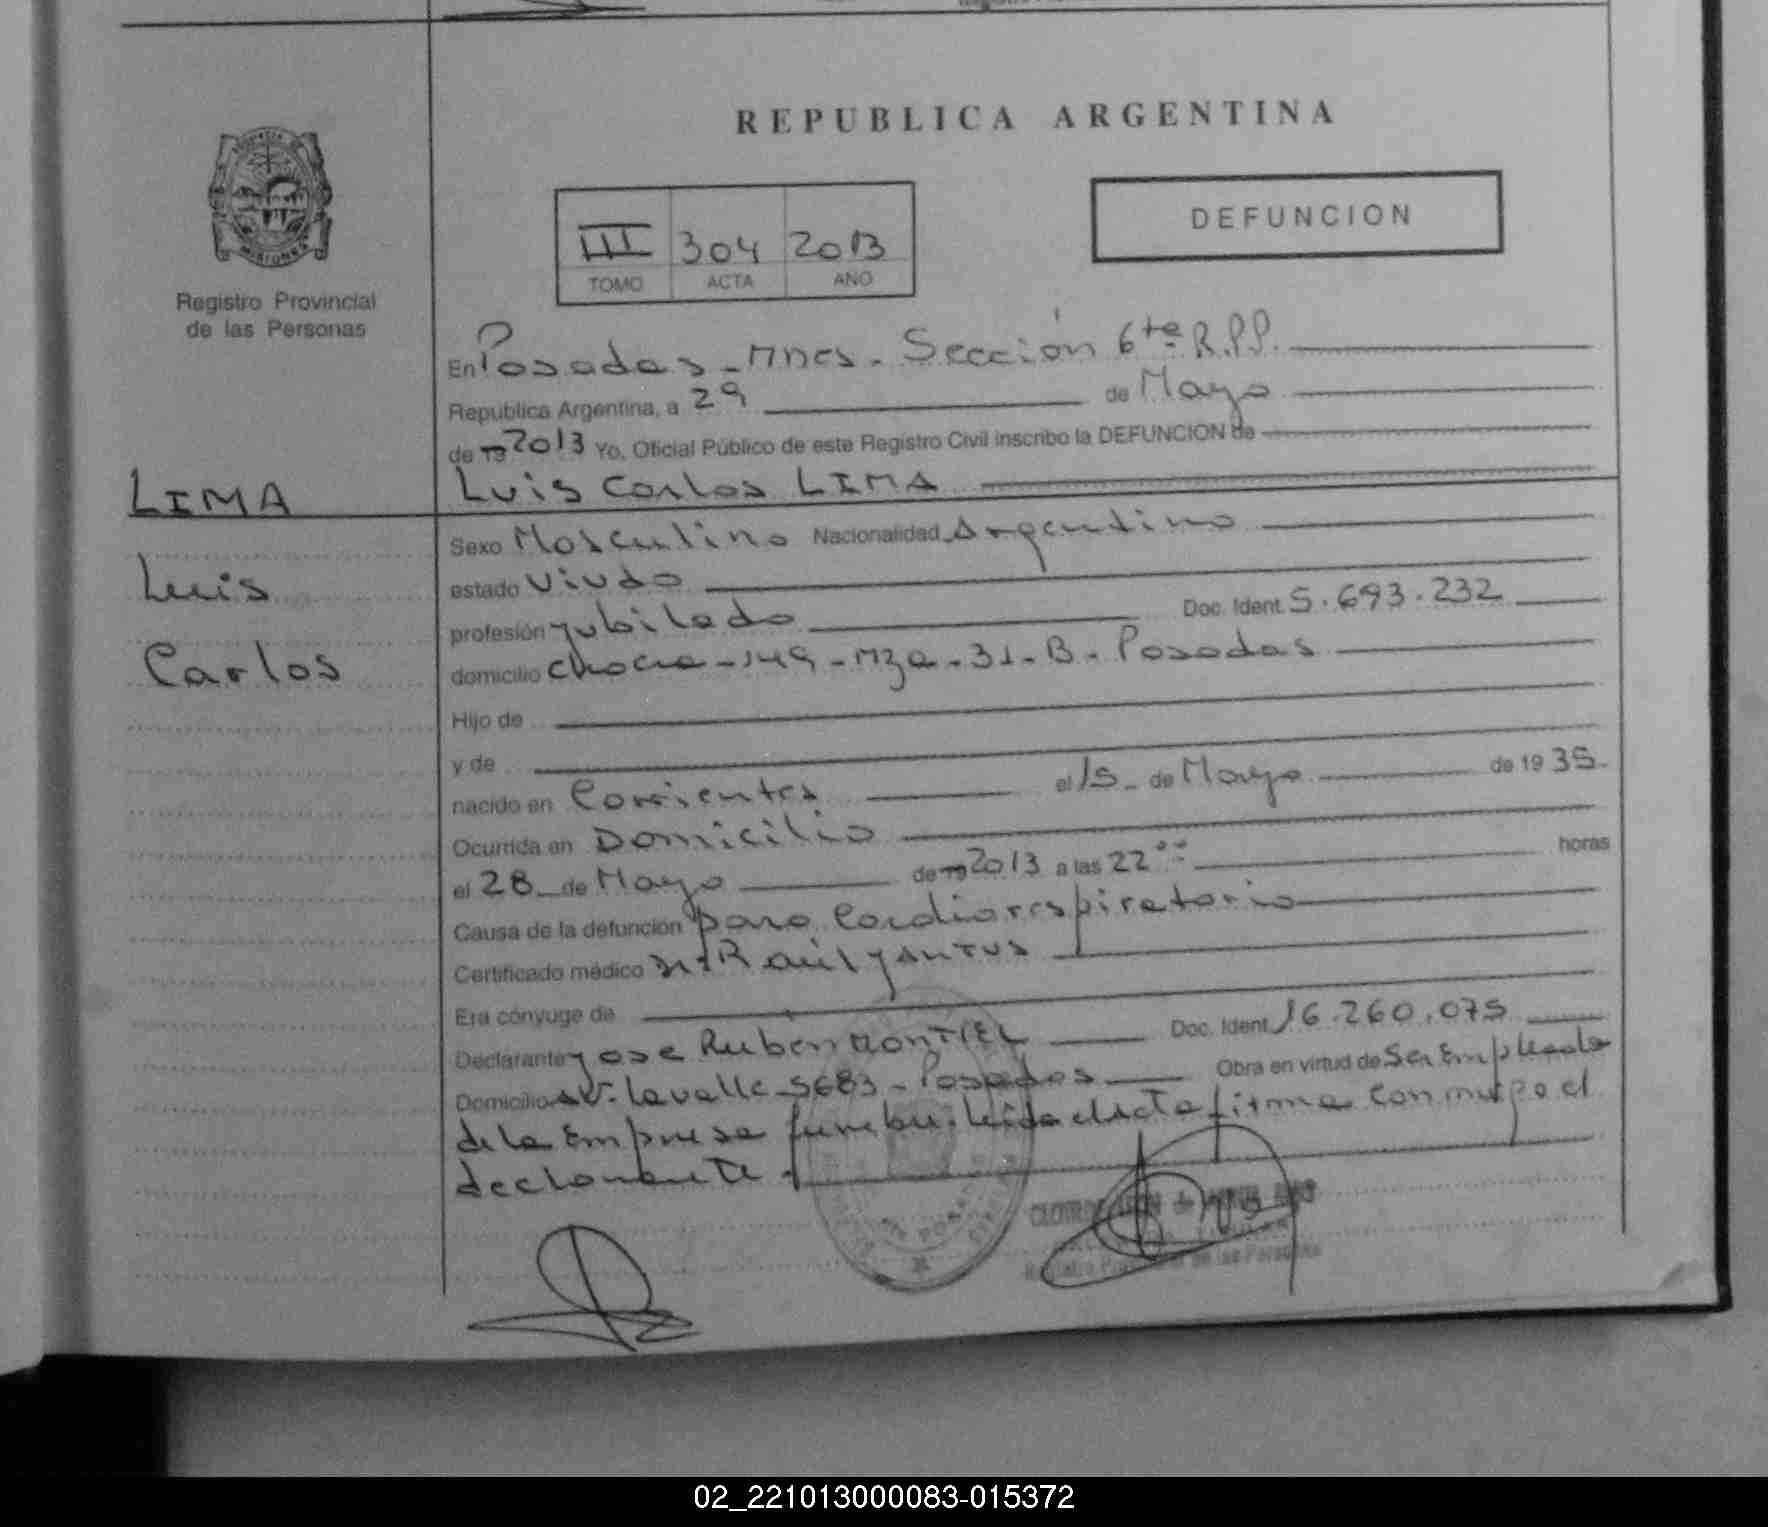 REPUBLICA ARGENTINA
DEFUNCION
III 304 2013
TOMO ACTA AÑO
MISIONES
Registro Provincial
de las Personas
En Posadas - Mnes - Sección 6ta R.P.P.
República Argentina, a 29 de Mayo
de 19 2013 Yo, Oficial Público de este Registro Civil inscribo la DEFUNCION de
LIMA
Luis Carlos LIMA
Luis
Carlos
Sexo Masculino Nacionalidad Argentino
estado viudo
profesión jubilado Doc. Ident. 5.693.232
domicilio Chacra - 149 - Mza - 31 - B - Posadas
Hijo de
y de
nacido en Corrientes el 15 de Mayo de 1935
Ocurrida en Domicilio
el 28 de Mayo de 19 2013 a las 22 horas
Causa de la defunción paro cardiorespiratorio
Certificado médico Raúl
Era cónyuge de
Declarante Jose Ruben MONTIEL Doc. Ident. 16.260.075
Domicilio Av. Lavalle - 5683 - Posadas Obra en virtud de Ser Empleado
de la Empresa funebre. Leida el acta firma conmigo el
declarante
Registro Provincial de las Personas
02_221013000083-015372